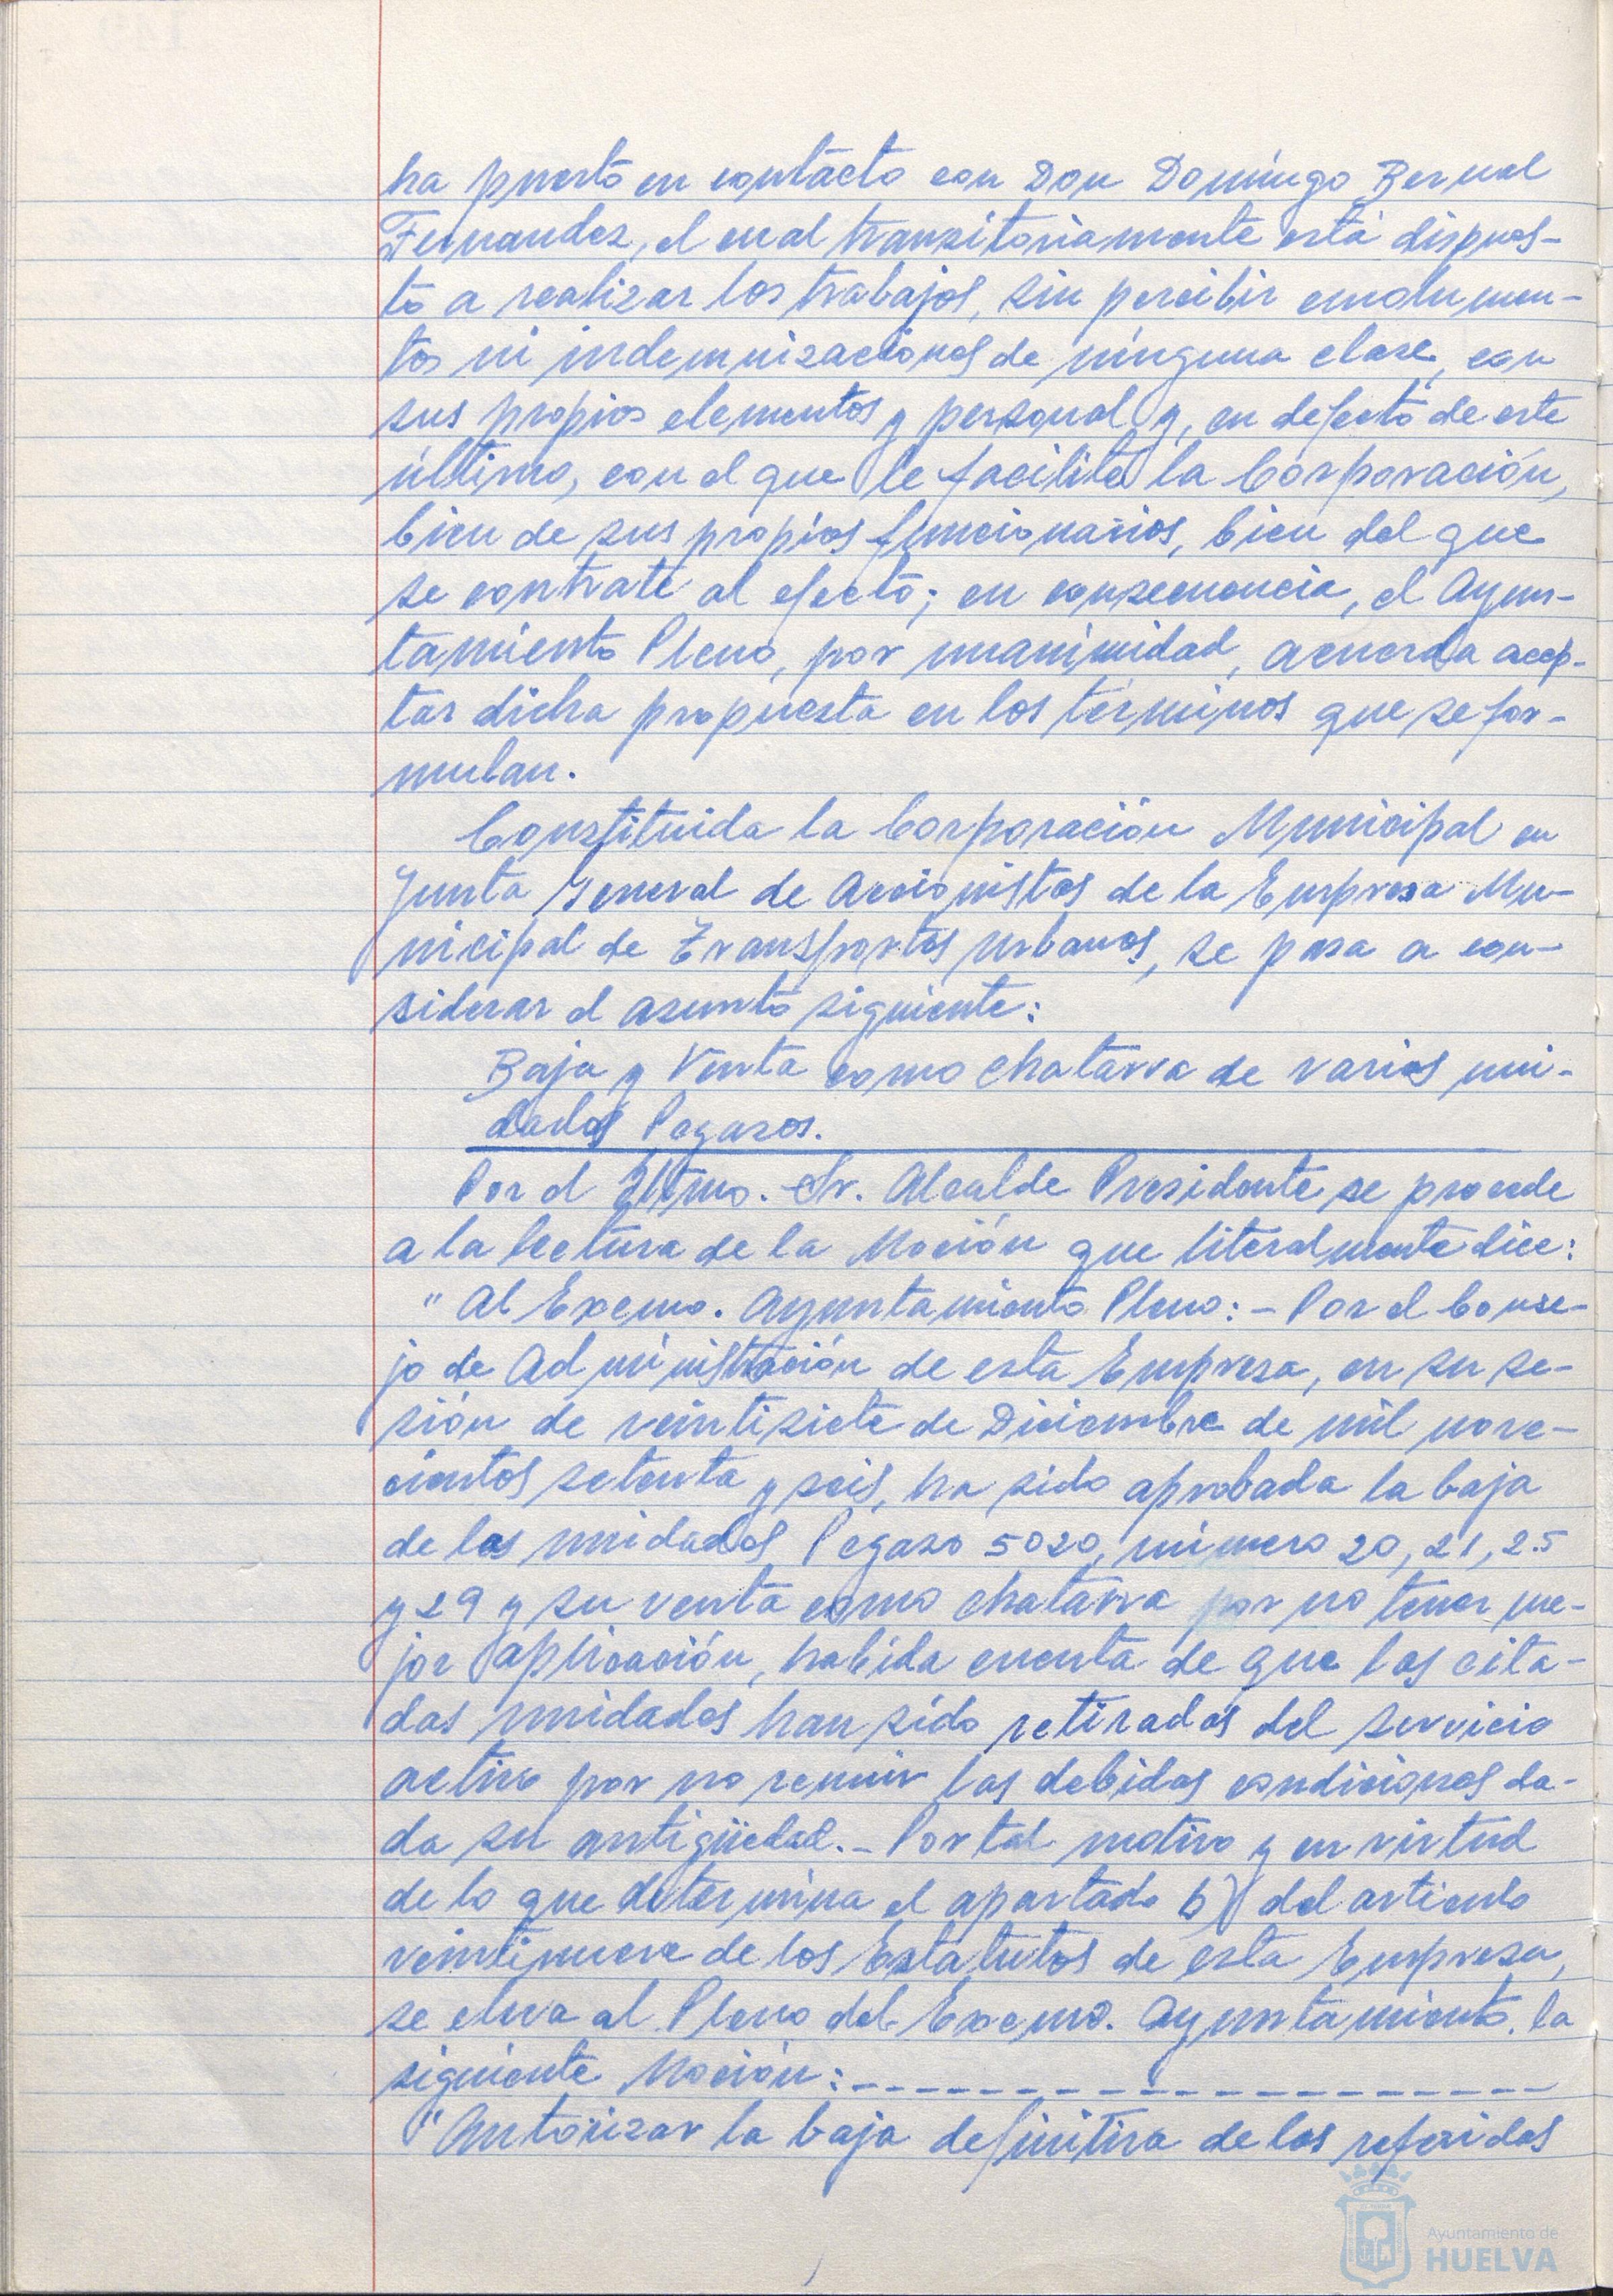 ha puesto en contacto con Don Domingo Bernal
Fernandez, el cual transitoriamente está dispues-
to a realizar los trabajos, sin percibir emolumen-
tos ni indemnizaciones de ninguna clase, con
sus propios elementos y personal y, en defecto de este
último, con el que le facilite la Corporación,
bien de sus propios funcionarios, bien del que
se contrate al efecto; en consecuencia, el Ayun-
tamiento Pleno, por unanimidad, acuerda acep-
tar dicha propuesta en los términos que se for-
mulan.
Constituida la Corporación Municipal en
Junta General de Accionistas de la Empresa Mu-
nicipal de Transportes Urbanos, se pasa a con-
siderar el asunto siguiente:
Baja y Venta como chatarra de varias uni-
dades Pegasos.
Por el Iltmo. Sr. Alcalde Presidente se procede
a la lectura de la Moción que literalmente dice:
"Al Excmo. Ayuntamiento Pleno: - Por el Conse-
jo de Administración de esta Empresa, en su se-
sión de veintisiete de Diciembre de mil nove-
cientos setenta y seis, ha sido aprobada la baja
de las unidades Pegaso 5020, número 20, 21, 25
y 29 y su venta como chatarra por no tener me-
jor aplicación, habida cuenta de que las cita-
das unidades han sido retirados del servicio
activo por no reunir las debidas condiciones da-
da su antigüedad. - Por tal motivo y en virtud
de lo que determina el apartado b) del articulo
veintinueve de los Estatutos de esta Empresa,
se eleva al Pleno del Excmo. Ayuntamiento, la
siguiente Moción: - - - - - - - - - - - - - - - - - - -
"Autorizar la baja definitiva de las referidas
Ayuntamiento de
HUELVA